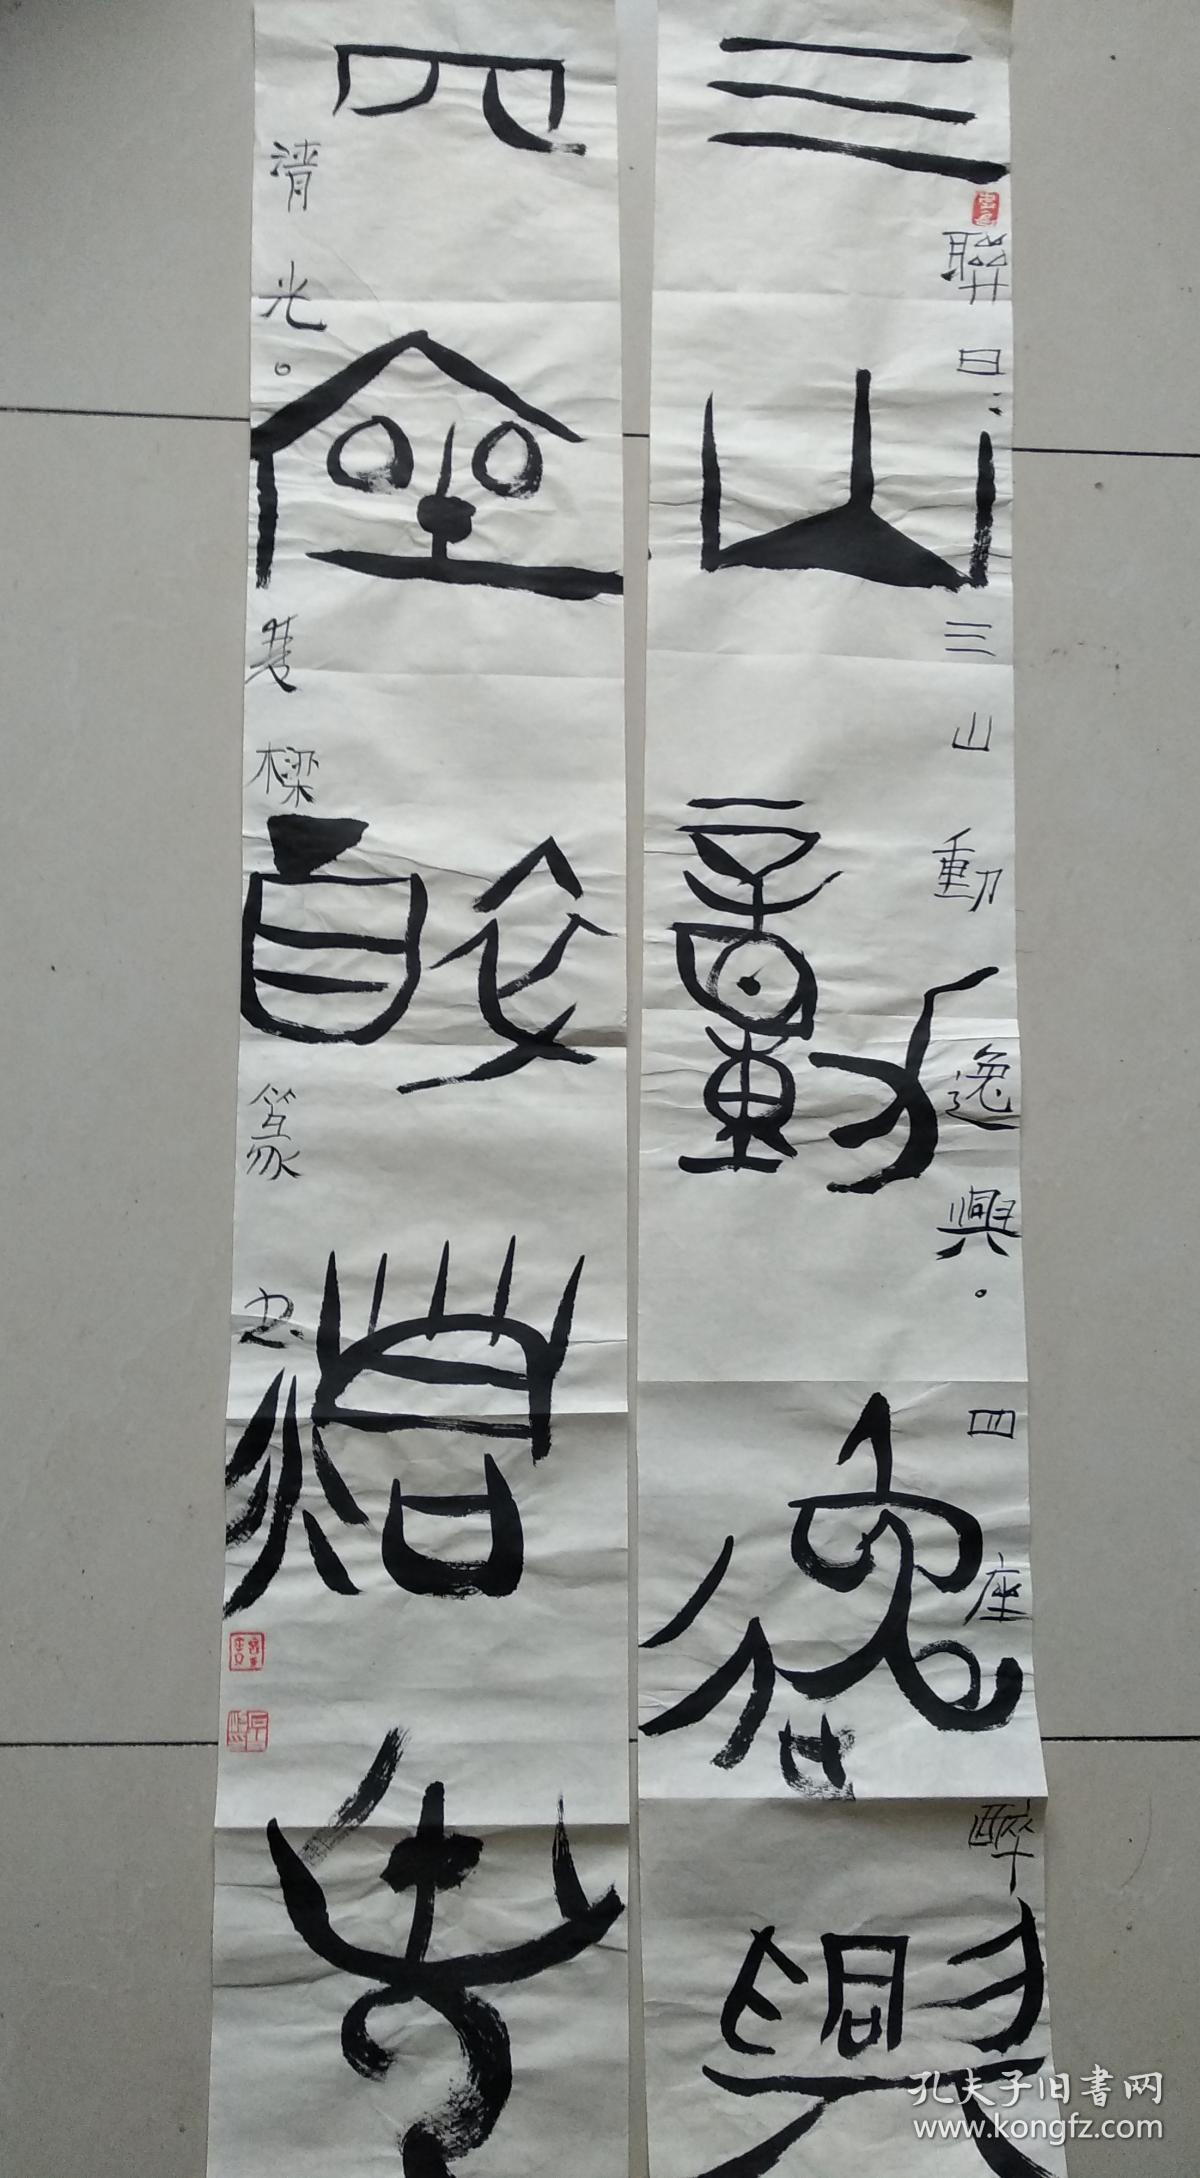 三山動逸興
聯曰：三山動逸興。四座醉
四座醉清光
清光。
篆
孔夫子旧書网
www.kongfz.com